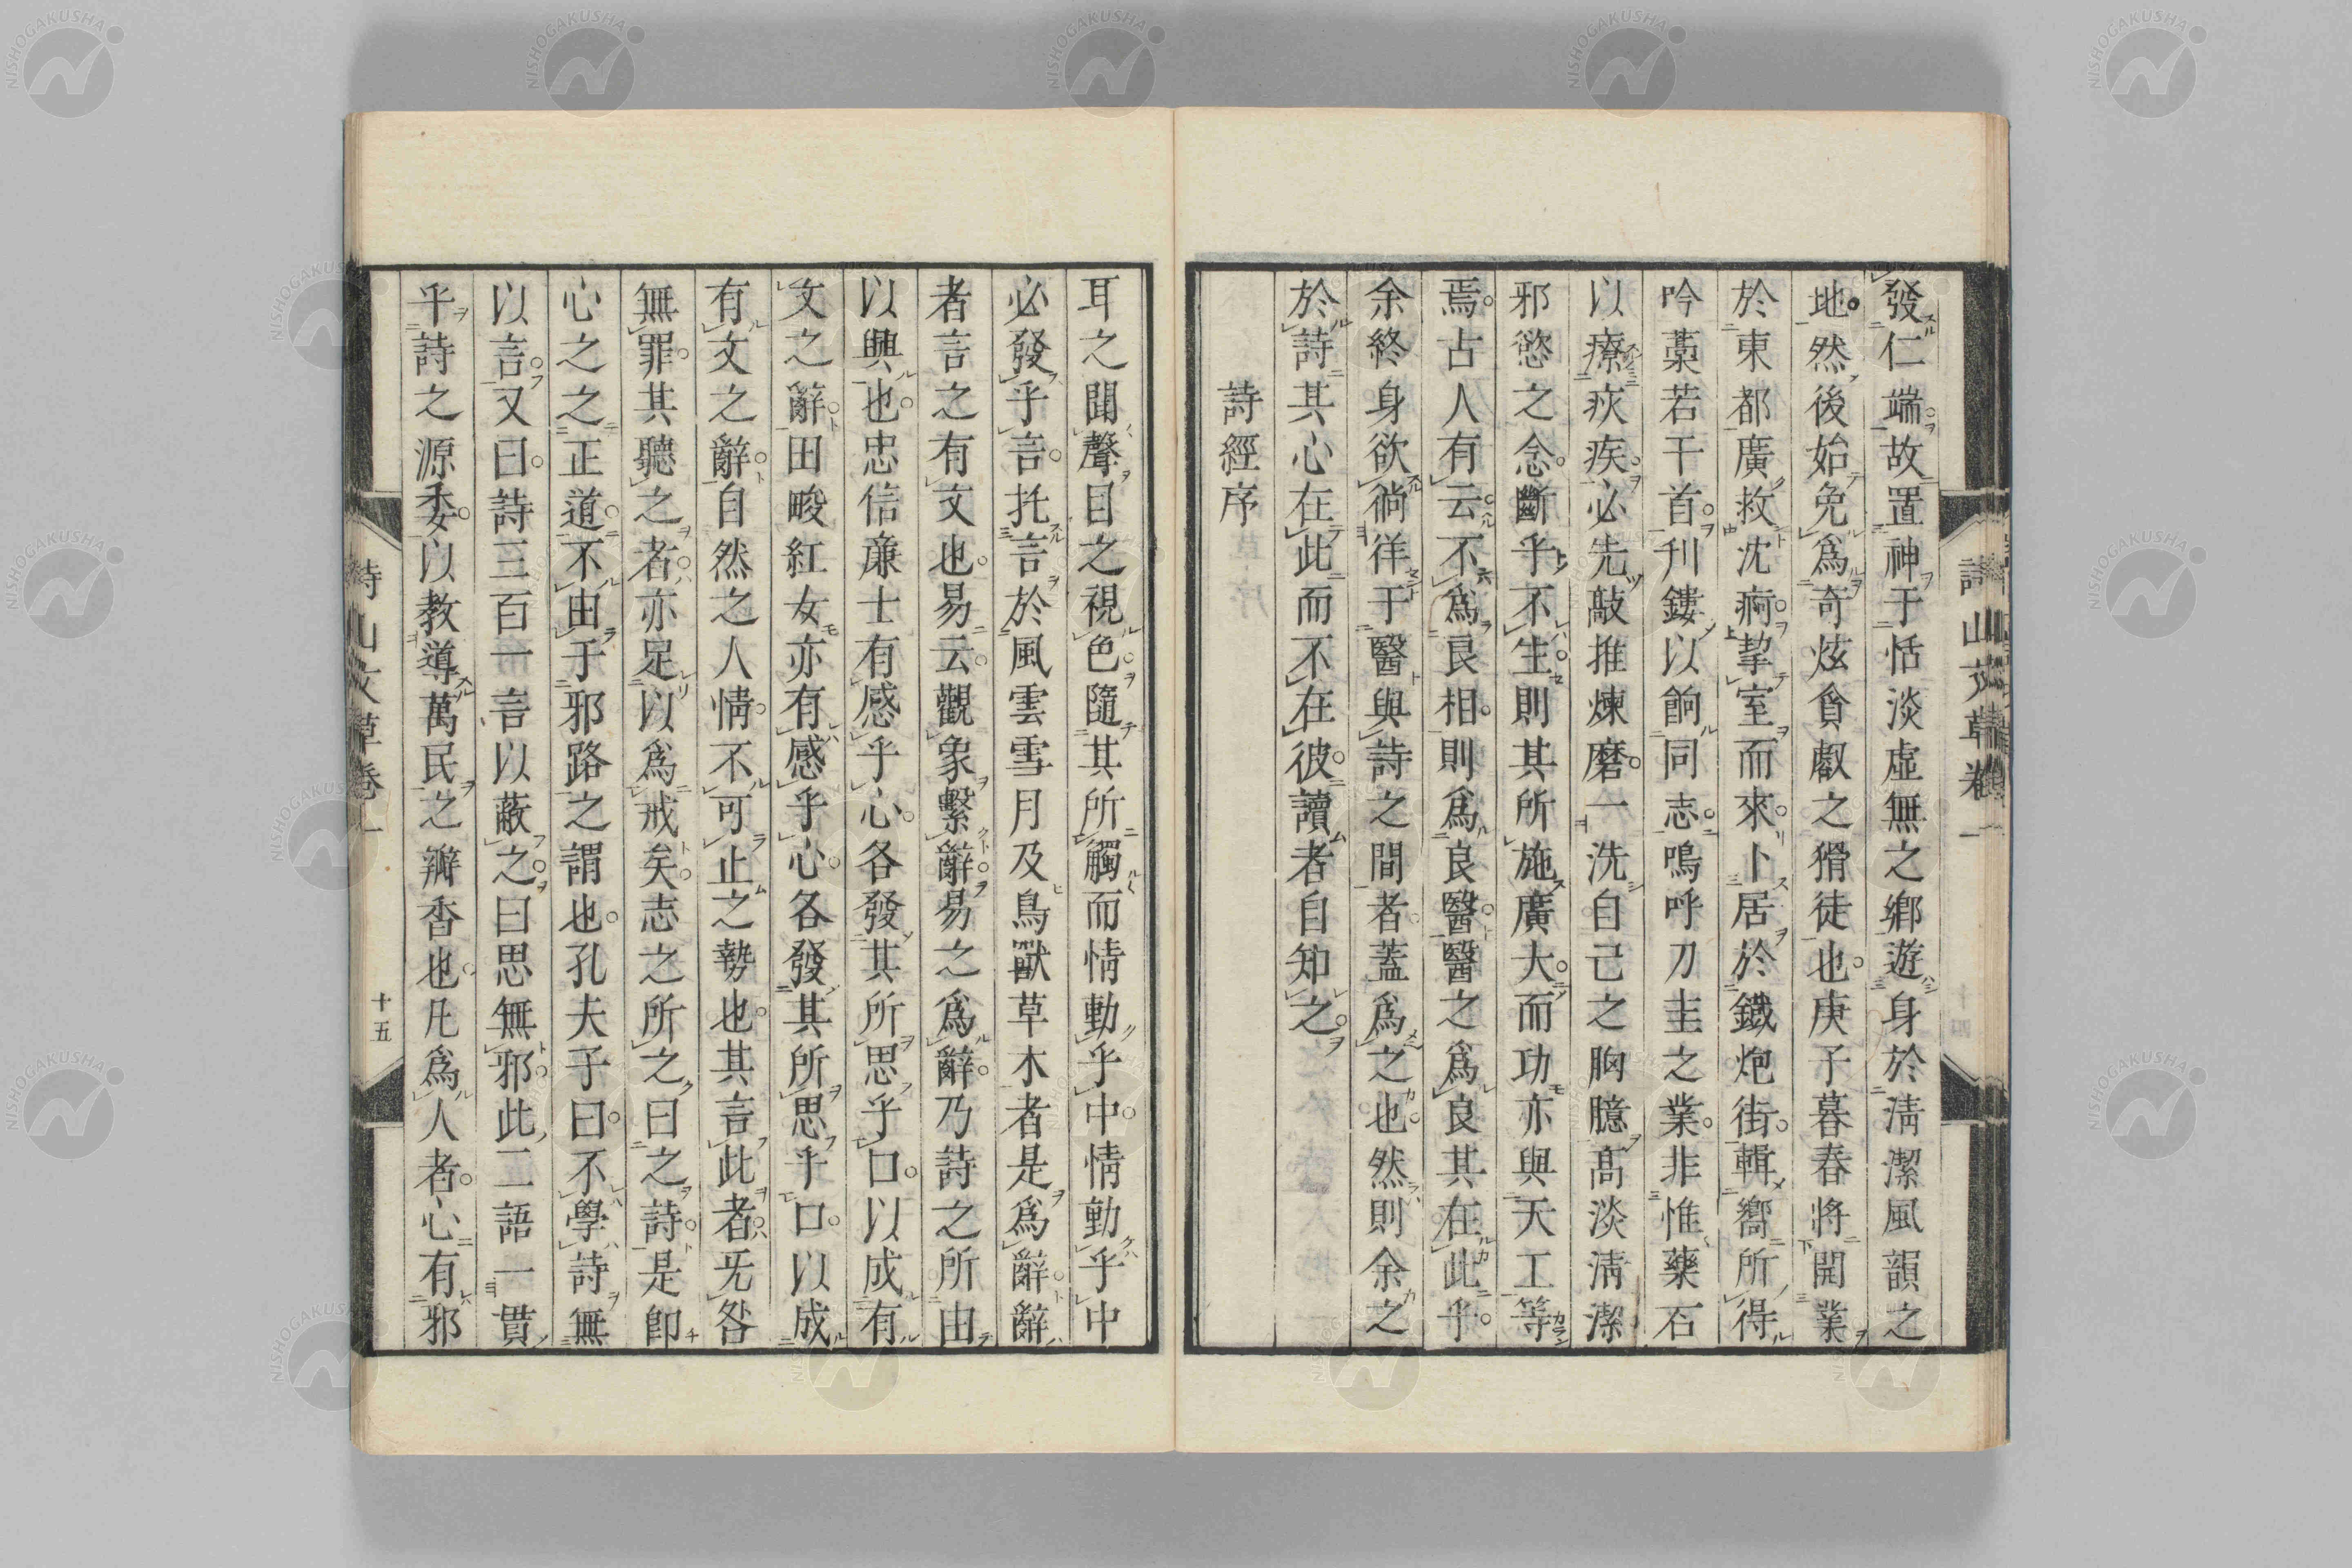 發仁端故置神于恬淡虛無之鄉遊身於淸潔風韻之
地然後始免爲奇炫貪戲之猾徒也庚子暮春將開業
於東都廣救沈痾挈室而來卜居於鐵炮街輯嚮所得
吟藁若干首刊鏤以餉同志嗚呼刀圭之業非惟藥石
以療疚疾必先敲推煉磨一洗自己之胸臆高淡淸潔
邪慾之念斷乎不生則其所施廣大而功亦與天工等
焉古人有云不爲良相則爲良醫醫之爲良其在此乎
余終身欲徜徉于醫與詩之間者蓋爲之也然則余之
於詩其心在此而不在彼讀者自知之
詩經序
詩山文草卷一
耳之聞聲目之視色隨其所觸而情動乎中情動乎中
必發乎言托言於風雲雪月及鳥獸草木者是爲辭辭
者言之有文也易云觀象繫辭易之爲辭乃詩之所由
以興也忠信亷士有感乎心各發其所思乎口以成有
文之辭田畯紅女亦有感乎心各發其所思乎口以成
有文之辭自然之人情不可止之勢也其言此者旡咎
無罪其聽之者亦足以爲戒矣志之所之曰之詩是卽
心之之正道不由于邪路之謂也孔夫子曰不學詩無
以言又曰詩三百一言以蔽之曰思無邪此二語一貫
乎詩之源委以敎導萬民之瓣香也凡爲人者心有邪
詩山文草卷一
十五
NISHOGAKUSHA